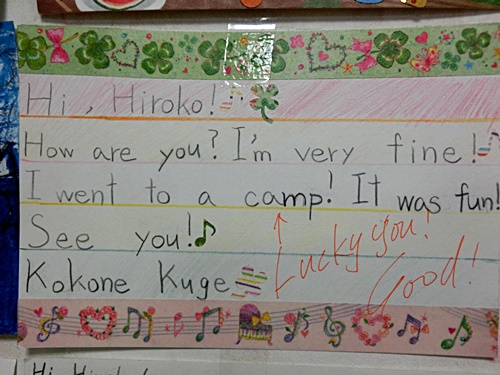 Hi, Hiroko!
How are you? I'm very fine!
I went to a camp! It was fun!
See you!
Lucky you!
Kokone Kuge
Good!
Hi Hiroko!